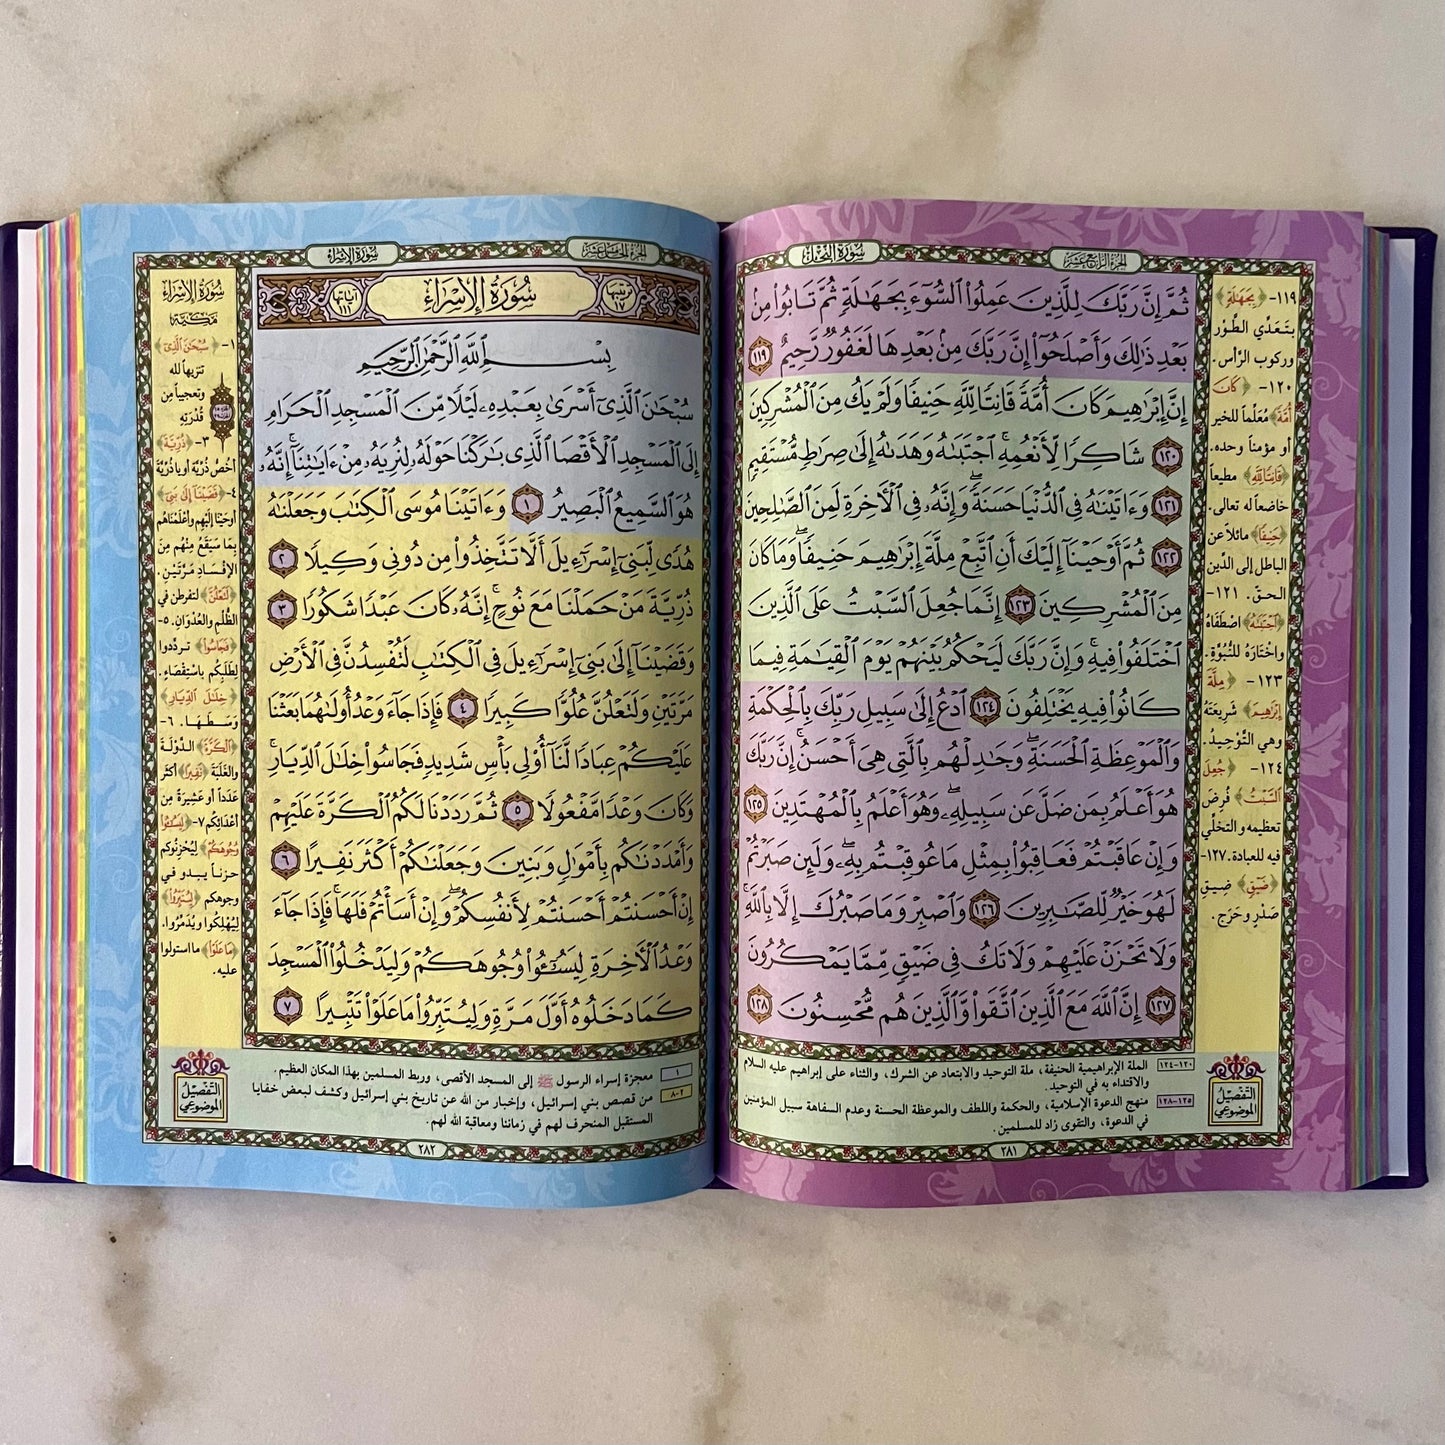 الجزء الرابع عشر
سورة النحل
ثُمَّ إِنَّ رَبَّكَ لِلَّذِينَ عَمِلُوا۟ ٱلسُّوٓءَ بِجَهَـٰلَةٍ ثُمَّ تَابُوا۟ مِنۢ
بَعْدِ ذَٰلِكَ وَأَصْلَحُوٓا۟ إِنَّ رَبَّكَ مِنۢ بَعْدِهَا لَغَفُورٌ رَّحِيمٌ ١١٩
إِنَّ إِبْرَٰهِيمَ كَانَ أُمَّةً قَانِتًا لِّلَّهِ حَنِيفًا وَلَمْ يَكُ مِنَ ٱلْمُشْرِكِينَ
١٢٠ شَاكِرًا لِّأَنْعُمِهِ ۚ ٱجْتَبَىٰهُ وَهَدَىٰهُ إِلَىٰ صِرَٰطٍ مُّسْتَقِيمٍ
١٢١ وَءَاتَيْنَـٰهُ فِى ٱلدُّنْيَا حَسَنَةً ۖ وَإِنَّهُۥ فِى ٱلْـَٔاخِرَةِ لَمِنَ ٱلصَّـٰلِحِينَ
١٢٢ ثُمَّ أَوْحَيْنَآ إِلَيْكَ أَنِ ٱتَّبِعْ مِلَّةَ إِبْرَٰهِيمَ حَنِيفًا ۖ وَمَا كَانَ
مِنَ ٱلْمُشْرِكِينَ ١٢٣ إِنَّمَا جُعِلَ ٱلسَّبْتُ عَلَى ٱلَّذِينَ
ٱخْتَلَفُوا۟ فِيهِ ۚ وَإِنَّ رَبَّكَ لَيَحْكُمُ بَيْنَهُمْ يَوْمَ ٱلْقِيَـٰمَةِ فِيمَا
كَانُوا۟ فِيهِ يَخْتَلِفُونَ ١٢٤ ٱدْعُ إِلَىٰ سَبِيلِ رَبِّكَ بِٱلْحِكْمَةِ
وَٱلْمَوْعِظَةِ ٱلْحَسَنَةِ ۖ وَجَـٰدِلْهُم بِٱلَّتِى هِىَ أَحْسَنُ ۚ إِنَّ رَبَّكَ
هُوَ أَعْلَمُ بِمَن ضَلَّ عَن سَبِيلِهِۦ ۖ وَهُوَ أَعْلَمُ بِٱلْمُهْتَدِينَ ١٢٥
وَإِنْ عَاقَبْتُمْ فَعَاقِبُوا۟ بِمِثْلِ مَا عُوقِبْتُم بِهِۦ ۖ وَلَئِن صَبَرْتُمْ
لَهُوَ خَيْرٌ لِّلصَّـٰبِرِينَ ١٢٦ وَٱصْبِرْ وَمَا صَبْرُكَ إِلَّا بِٱللَّهِ ۚ
وَلَا تَحْزَنْ عَلَيْهِمْ وَلَا تَكُ فِى ضَيْقٍ مِّمَّا يَمْكُرُونَ
١٢٧ إِنَّ ٱللَّهَ مَعَ ٱلَّذِينَ ٱتَّقَوا۟ وَّٱلَّذِينَ هُم مُّحْسِنُونَ ١٢٨
١١٩- ﴿بِجَهَالَةٍ﴾
بتَعَدِّي الطَّوْر
وركوب الرَّأس.
١٢٠- ﴿كَانَ
أُمَّةً﴾ مُعَلِّماً للخير
أو مؤمناً وحده.
﴿قَانِتًا لِلَّهِ﴾ مطيعاً
خاضعاً له تعالى.
﴿حَنِيفًا﴾ مائلاً عن
الباطل إلى الدِّين
الحقّ. ١٢١-
﴿اجْتَبَاهُ﴾ اصْطَفَاهُ
واخْتَارَهُ للنُّبُوَّةِ.
١٢٣- ﴿مِلَّةَ
إِبْرَاهِيمَ﴾ شَرِيعَتَهُ
وهي التَّوْحِيدُ.
١٢٤- ﴿جُعِلَ
السَّبْتُ﴾ فُرِضَ
تعظيمه والتخلِّي
فيه للعبادة. ١٢٧-
﴿ضَيْقٍ﴾ ضِيقِ
صَدْرٍ وحَرَجٍ.
١٢٠-١٢٤ الملة الإبراهيمية الحنيفة، ملة التوحيد والابتعاد عن الشرك، والثناء على إبراهيم عليه السلام
والاقتداء به في التوحيد.
١٢٥-١٢٨ منهج الدعوة الإسلامية، والحكمة واللطف والموعظة الحسنة وعدم السفاهة سبيل المؤمنين
في الدعوة، والتقوى زاد للمسلمين.
التفصيل
الموضوعي
٢٨١
الجزء الخامس عشر
سورة الإسراء
ترتيبها ١٧
سورة الإسراء
آياتها ١١١
بِسْمِ ٱللَّهِ ٱلرَّحْمَـٰنِ ٱلرَّحِيمِ
سُبْحَـٰنَ ٱلَّذِىٓ أَسْرَىٰ بِعَبْدِهِۦ لَيْلًا مِّنَ ٱلْمَسْجِدِ ٱلْحَرَامِ
إِلَى ٱلْمَسْجِدِ ٱلْأَقْصَا ٱلَّذِى بَـٰرَكْنَا حَوْلَهُۥ لِنُرِيَهُۥ مِنْ ءَايَـٰتِنَآ ۚ إِنَّهُۥ
هُوَ ٱلسَّمِيعُ ٱلْبَصِيرُ ١ وَءَاتَيْنَا مُوسَى ٱلْكِتَـٰبَ وَجَعَلْنَـٰهُ
هُدًى لِّبَنِىٓ إِسْرَٰٓءِيلَ أَلَّا تَتَّخِذُوا۟ مِن دُونِى وَكِيلًا ٢
ذُرِّيَّةَ مَنْ حَمَلْنَا مَعَ نُوحٍ ۚ إِنَّهُۥ كَانَ عَبْدًا شَكُورًا ٣
وَقَضَيْنَآ إِلَىٰ بَنِىٓ إِسْرَٰٓءِيلَ فِى ٱلْكِتَـٰبِ لَتُفْسِدُنَّ فِى ٱلْأَرْضِ
مَرَّتَيْنِ وَلَتَعْلُنَّ عُلُوًّا كَبِيرًا ٤ فَإِذَا جَآءَ وَعْدُ أُولَىٰهُمَا بَعَثْنَا
عَلَيْكُمْ عِبَادًا لَّنَآ أُو۟لِى بَأْسٍ شَدِيدٍ فَجَاسُوا۟ خِلَـٰلَ ٱلدِّيَارِ ۚ
وَكَانَ وَعْدًا مَّفْعُولًا ٥ ثُمَّ رَدَدْنَا لَكُمُ ٱلْكَرَّةَ عَلَيْهِمْ
وَأَمْدَدْنَـٰكُم بِأَمْوَٰلٍ وَبَنِينَ وَجَعَلْنَـٰكُمْ أَكْثَرَ نَفِيرًا ٦
إِنْ أَحْسَنتُمْ أَحْسَنتُمْ لِأَنفُسِكُمْ ۖ وَإِنْ أَسَأْتُمْ فَلَهَا ۚ فَإِذَا جَآءَ
وَعْدُ ٱلْـَٔاخِرَةِ لِيَسُـۥٓـُٔوا۟ وُجُوهَكُمْ وَلِيَدْخُلُوا۟ ٱلْمَسْجِدَ
كَمَا دَخَلُوهُ أَوَّلَ مَرَّةٍ وَلِيُتَبِّرُوا۟ مَا عَلَوْا۟ تَتْبِيرًا ٧
سورة الإسراء
مكية
١- ﴿سُبْحَانَ الَّذِي﴾
تنزيهاً لله
وتعجيباً مِن
قُدْرَتِهِ
٣- ﴿ذُرِّيَّةَ﴾
أخُصُّ ذُرِّيَّةَ أو يا ذُرِّيَّةَ
٤- ﴿قَضَيْنَا إِلَى بَنِي﴾
أوحَيْنَا إليْهِم وأعْلَمْنَاهُم
بِمَا سَيَقَعُ مِنْهُم مِن
الإفْسَادِ مَرَّتَيْنِ.
﴿لَتَعْلُنَّ﴾ لتفرطن في
الظُّلْمِ والعُدْوَانِ. ٥-
﴿فَجَاسُوا﴾ تردَّدُوا
لِطَلَبِكُم باسْتِقْصَاءٍ.
﴿خِلَالَ الدِّيَارِ﴾
وَسَطَهَا. ٦-
﴿الْكَرَّةَ﴾ الدَّوْلَةَ
والغَلَبَةَ ﴿نَفِيرًا﴾ أكثَرَ
عَدَداً أو عَشِيرَةً مِن
أعْدَائِكُم ٧- ﴿لِيَسُوءُوا
وُجُوهَكُمْ﴾ لِيُحْزِنُوكم
حزناً يبدو في
وجوهكم ﴿لِيُتَبِّرُوا﴾
لِيُهْلِكُوا ويُدَمِّرُوا.
﴿مَا عَلَوْا﴾ ما استولوا
عليه.
١ معجزة إسراء الرسول ﷺ إلى المسجد الأقصى، وربط المسلمين بهذا المكان العظيم.
٢-٨ من قصص بني إسرائيل، وإخبار من الله عن تاريخ بني إسرائيل وكشف لبعض خفايا
المستقبل المنحرف لهم في زماننا ومعاقبة الله لهم.
التفصيل
الموضوعي
٢٨٢